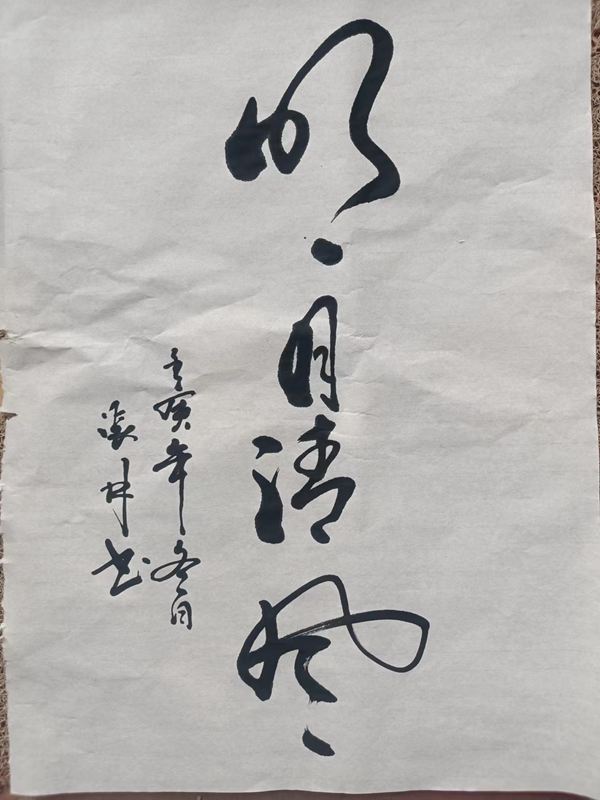 明月清风
壬寅年冬月
张 书